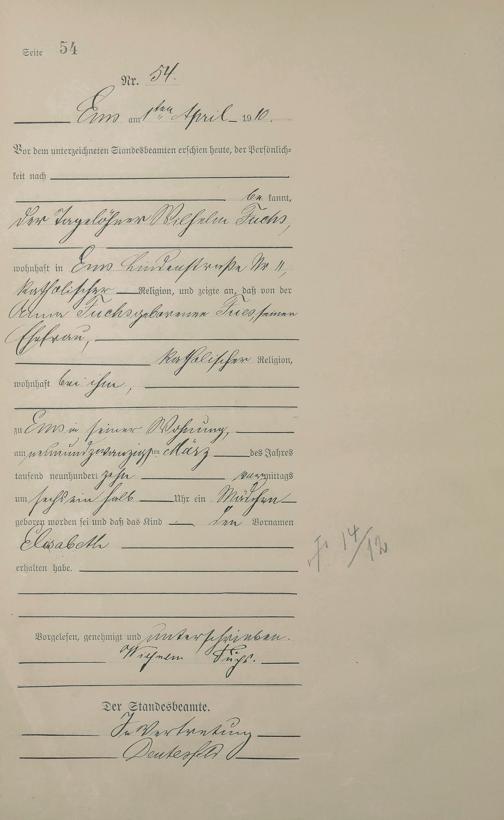 Seite 54
Nr. 54.
Ems am 1ten April 1910.
Vor dem unterzeichneten Standesbeamten erschien heute, der Persönlich-
keit nach
be kannt,
der Tagelöhner Wilhelm Fuchs,
wohnhaft in Ems Lindenstraße Nr 11,
katholischer Religion, und zeigte an, daß von der
Anna Fuchs geborenen seiner
Ehefrau,
katholischer Religion,
wohnhaft bei ihm,
zu Ems in seiner Wohnung,
am neunundzwanzigsten März des Jahres
tausend neunhundert zehn vormittags
um sechs ein halb Uhr ein Mädchen
geboren worden sei und daß das Kind den Vornamen
Elisabeth
erhalten habe.
14/12
Vorgelesen, genehmigt und unterschrieben.
Wilhelm Fuchs.
Der Standesbeamte.
In Vertretung